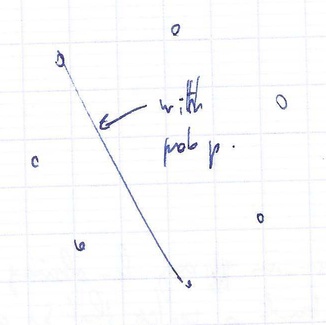 with
prob p.